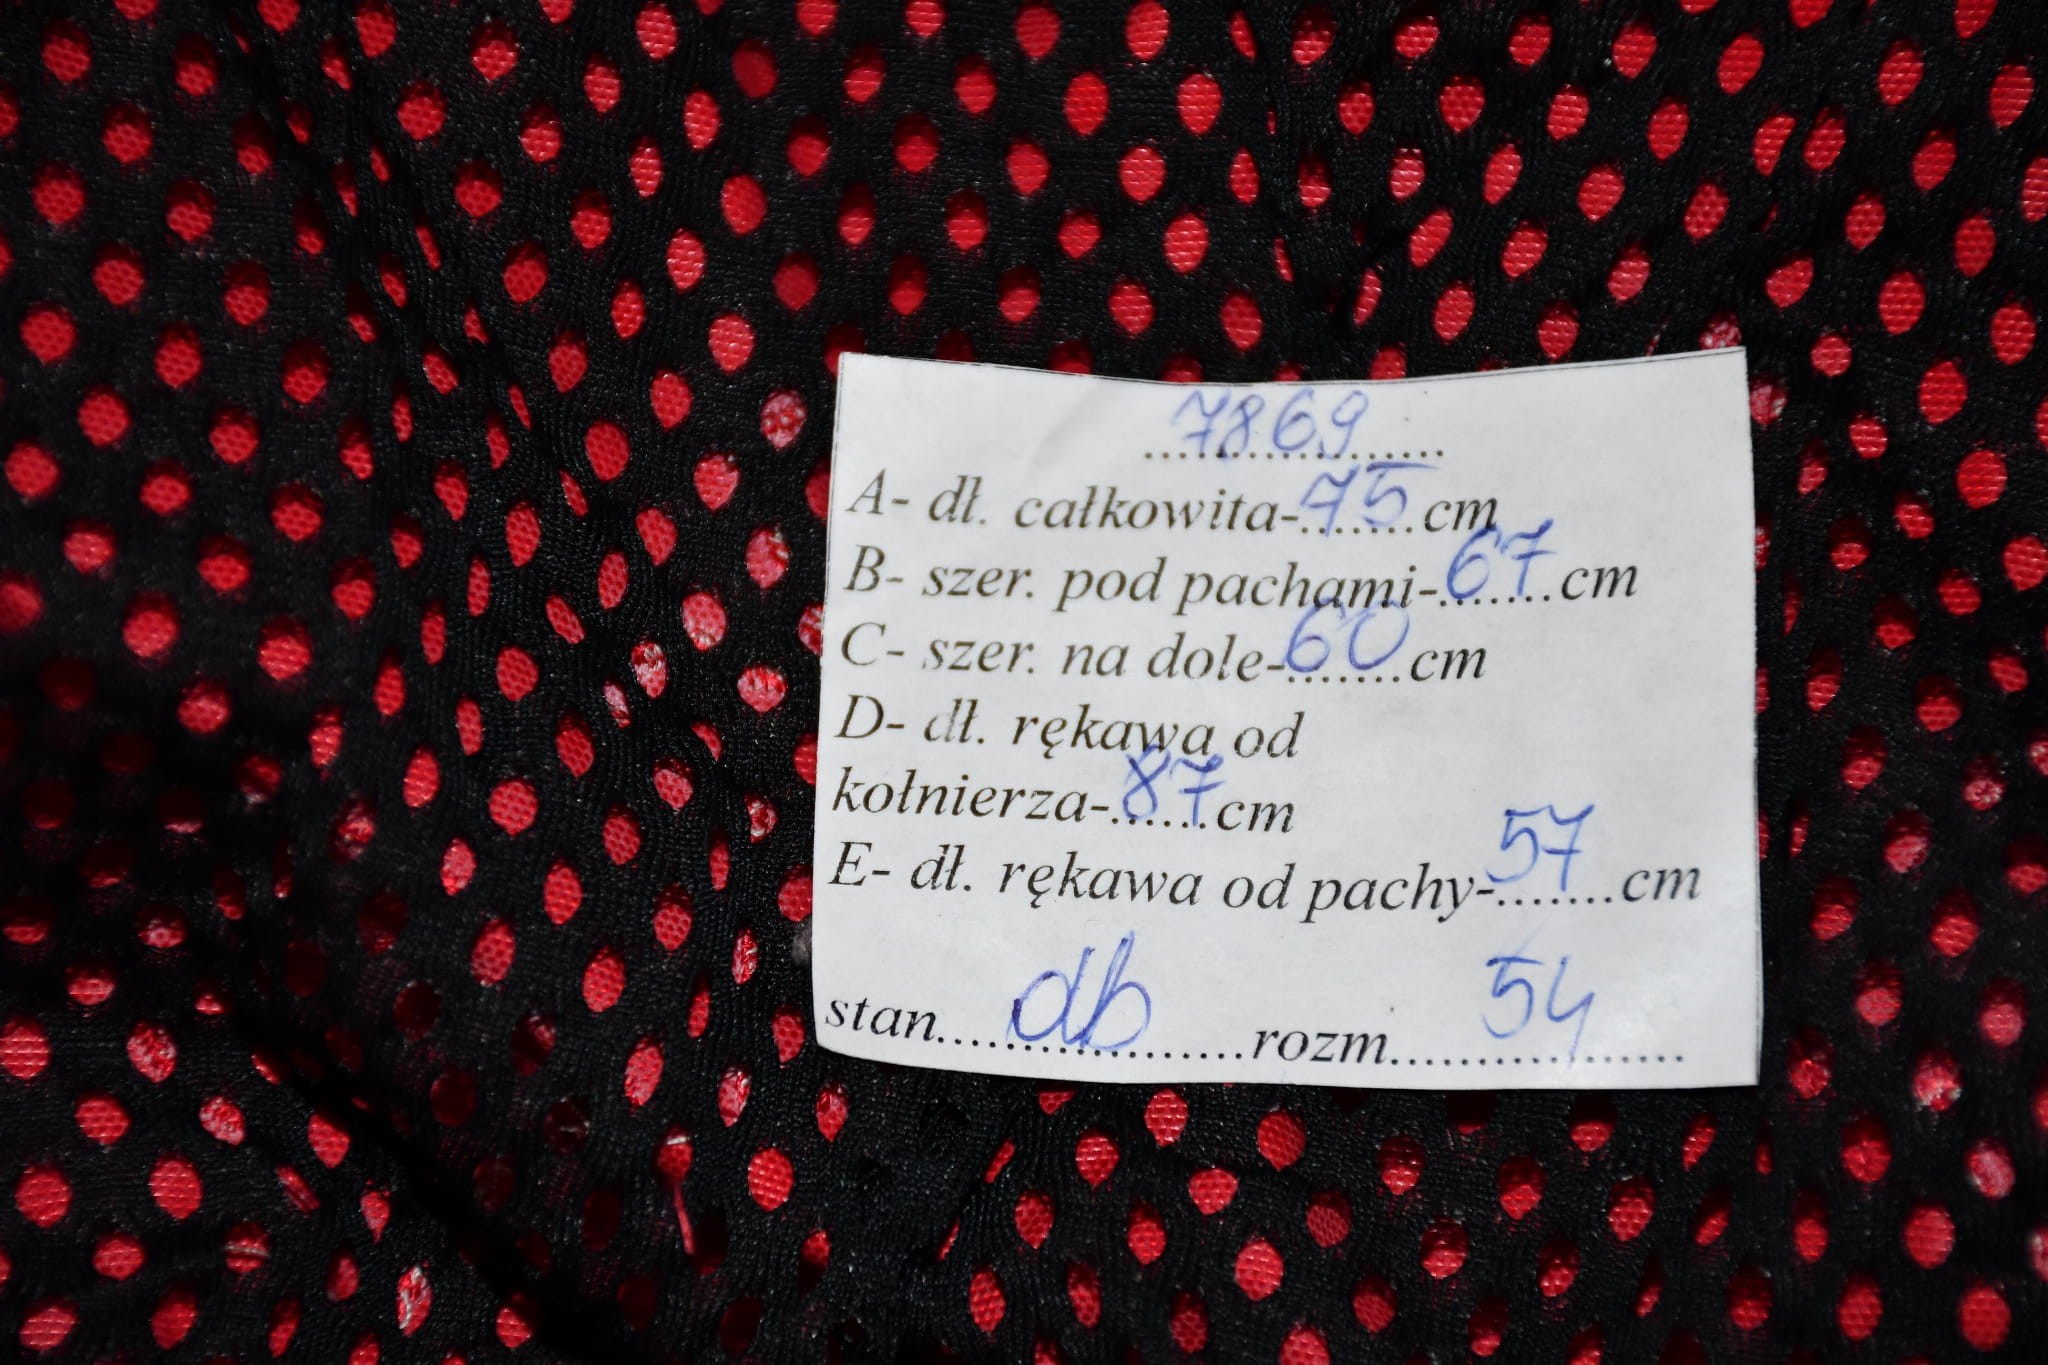 7869
A- dł. całkowita-75cm
B- szer. pod pachami-67cm
C- szer. na dole-60cm
D- dł. rękawa od
kołnierza-87cm
E- dł. rękawa od pachy-57cm
stan....db....rozm....54....